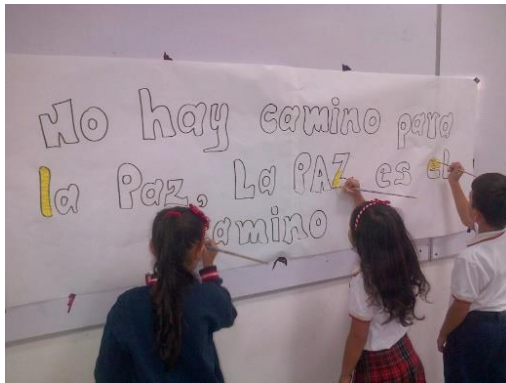 No hay camino para
la Paz, La PAZ es el
camino